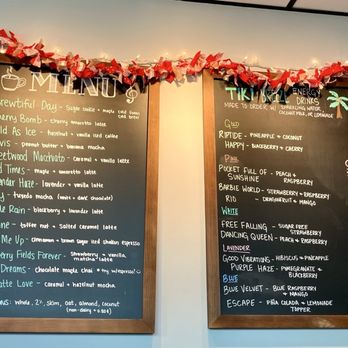 MENU
rewtiful Day - sugar cookie + maple cold foam cold brew
erry Bomb - cherry amaretto latte
ld As Ice - hazelnut + vanilla iced
vis - peanut butter + banana mocha
eetwood Macchiato - caramel + vanilla latte
d Times - maple + amaretto latte
ender Haze - lavender + vanilla latte
y - tuxedo mocha (white + dark chocolate)
le Rain - blackberry + lavender latte
ine - toffee nut + salted caramel latte
Me Up - cinnamon + brown sugar iced shaken espresso
erry Fields Forever - strawberry + vanilla matcha latte
Dreams - chocolate maple chai
atte Love - caramel + hazelnut mocha
ns: whole, 2%, skim, oat, almond, coconut
TIKI
ENERGY DRINKS
MADE TO ORDER W/ SPARKLING WATER, COCONUT MILK, OR LEMONADE
GOLD
RIPTIDE - PINEAPPLE + COCONUT
HAPPY - BLACKBERRY + CHERRY
PINK
POCKET FULL OF SUNSHINE - PEACH + RASPBERRY
BARBIE WORLD - STRAWBERRY + RASPBERRY
RIO - DRAGONFRUIT + MANGO
WHITE
FREE FALLING - SUGAR FREE STRAWBERRY
DANCING QUEEN - PEACH + RASPBERRY
LAVENDER
GOOD VIBRATIONS - HIBISCUS + PINEAPPLE
PURPLE HAZE - POMEGRANATE + BLACKBERRY
BLUE
BLUE VELVET - BLUE RASPBERRY + MANGO
ESCAPE - PIÑA COLADA + LEMONADE TOPPER